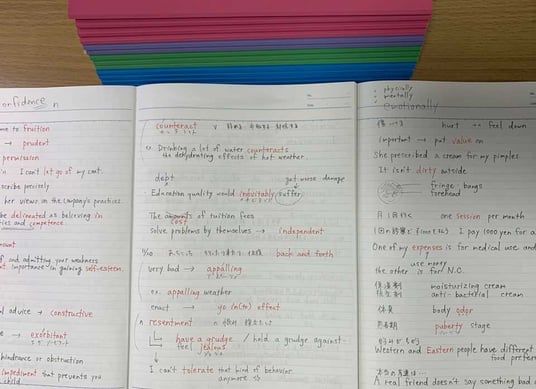 onfidence n
me to fruition
→ prudent
permission
I can't let go of my cat.
scribe precisely
her views on the company's practices.
be delineated as believing in
ties and competence.
mount
f, and admitting your weaknesses
t importance in gaining self-esteem.
al advice → constructive
→ exorbitant
hindrance or obstruction
impediment that prevents you
child
counteract v
ex. Drinking a lot of water counteracts
the dehydrating effects of hot weather.
debt got worse damage
Education quality would inevitably suffer
The amounts of tuition fees
(cost)
Solve problems by themselves → independent
back and forth
very bad → appalling
ex. appalling weather
enact → go in(to) effect
n resentment n
have a grudge / hold a grudge against
feel jealous
I can't tolerate that kind of behavior
anymore
physically
mentally
emotionally
hurt feel down
important → put value on
She prescribed a cream for my pimples
It isn't dirty outside
fringe bangs
forehead
月1回行く one session per month
I pay 1000 yen for a
One of my expenses is for medical use, and
use money
the other is for N.C.
保湿剤 moisturizing cream
抗生剤 anti-bacterial cream
体臭 body odor
思春期 puberty stage
Western and Eastern people have different
food prefere
本当の友達は…
A real friend doesn't say something bad